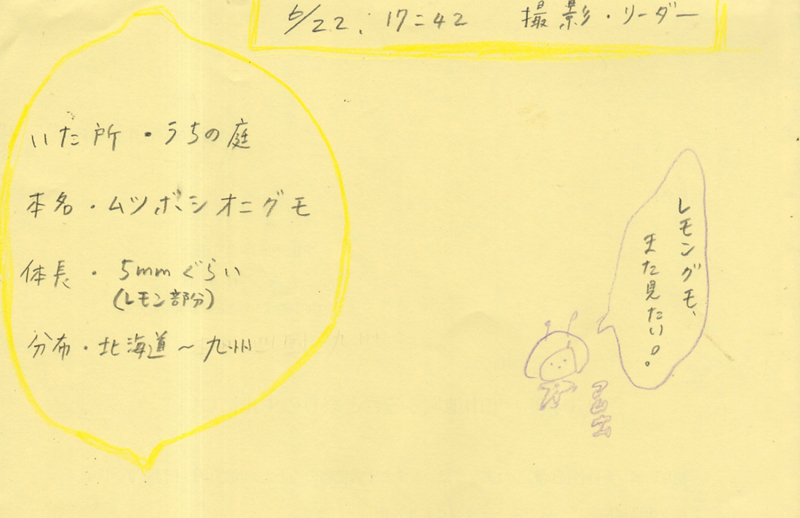 6/22.17=42 撮影・リーダー
いた所・うちの庭
本名・ムツボシオニグモ
体長・5mmぐらい
(レモン部分)
分布・北海道〜九州
レモングモ、
また見たい。。